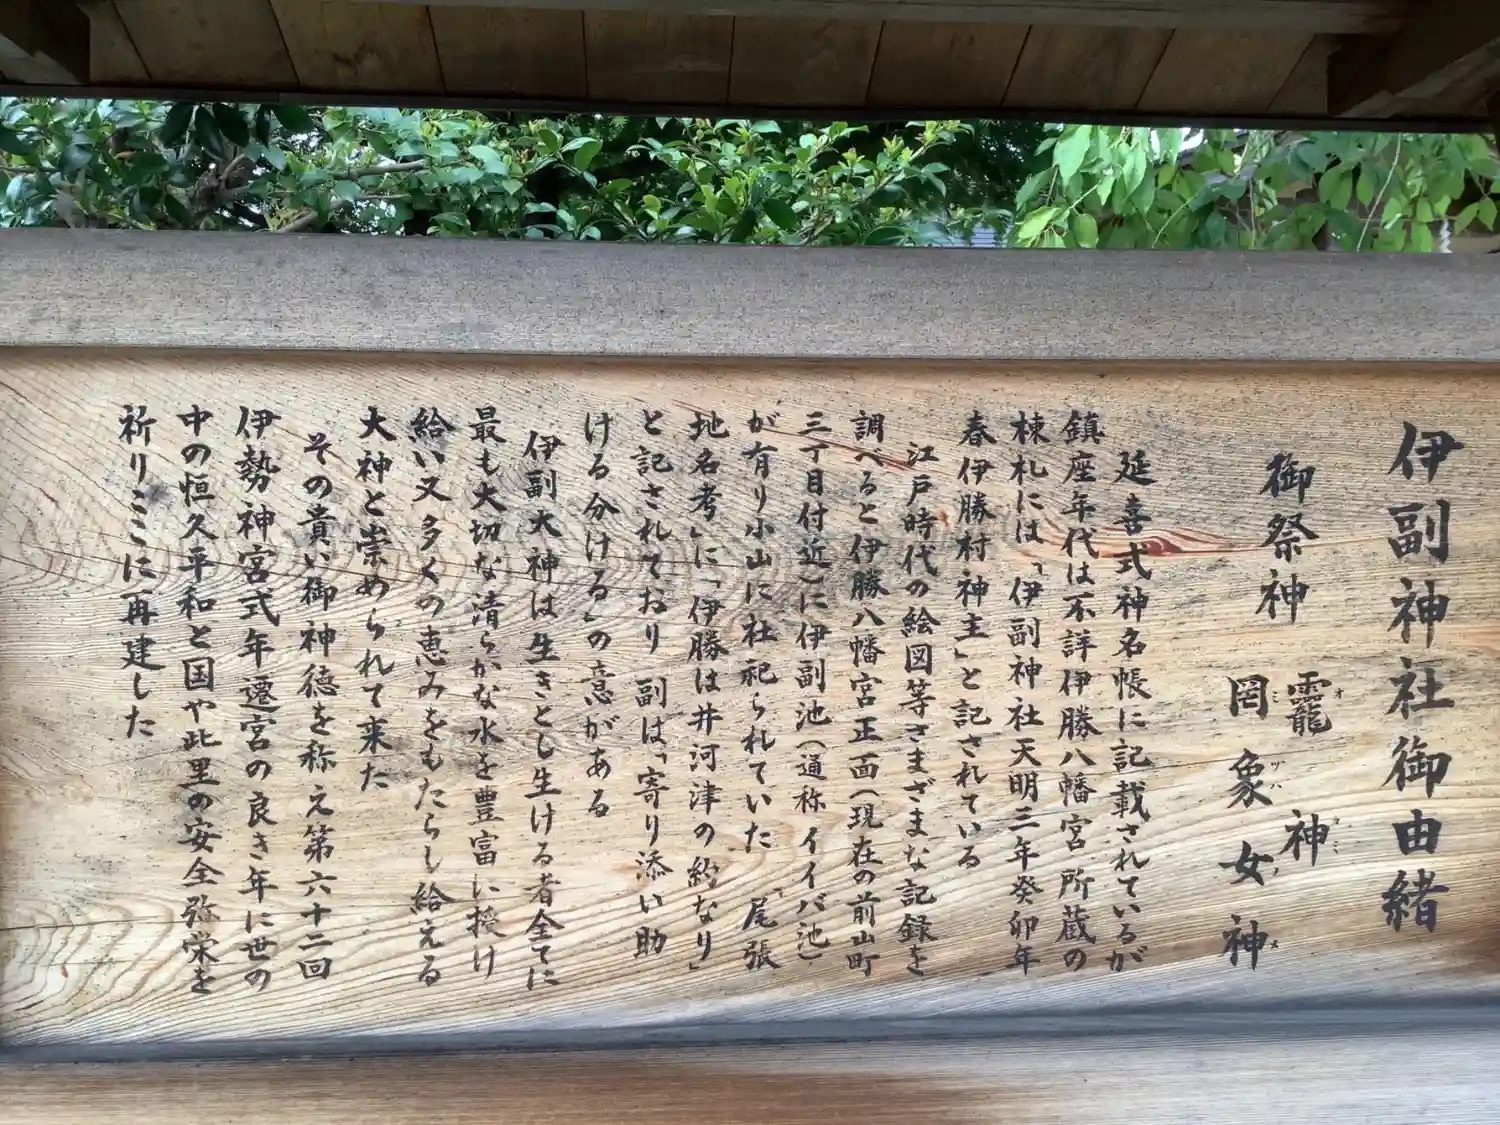 伊副神社御由緒
御祭神
龗神
オカミ
罔象女神
ミヅハノメ
延喜式神名帳に記載されているが
鎮座年代は不詳伊勝八幡宮所蔵の
棟札には「伊副神社天明三年癸卯年
春伊勝村神主」と記されている
江戸時代の絵図等さまざまな記録を
調べると伊勝八幡宮正面(現在の前山町
三丁目付近)に伊副池(通称イイバ池)
が有り小山に社祀られていた「尾張
地名考」に「伊勝は井河津の約なり」
と記されており 副は「寄り添い助
ける分ける」の意がある
伊副大神は生きとし生ける者全てに
最も大切な清らかな水を豊富に授け
給い又多くの恵みをもたらし給える
大神と崇められて来た
その貴い御神徳を称え第六十二回
伊勢神宮式年遷宮の良き年に世の
中の恒久平和と国や此里の安全弥栄を
祈りここに再建した